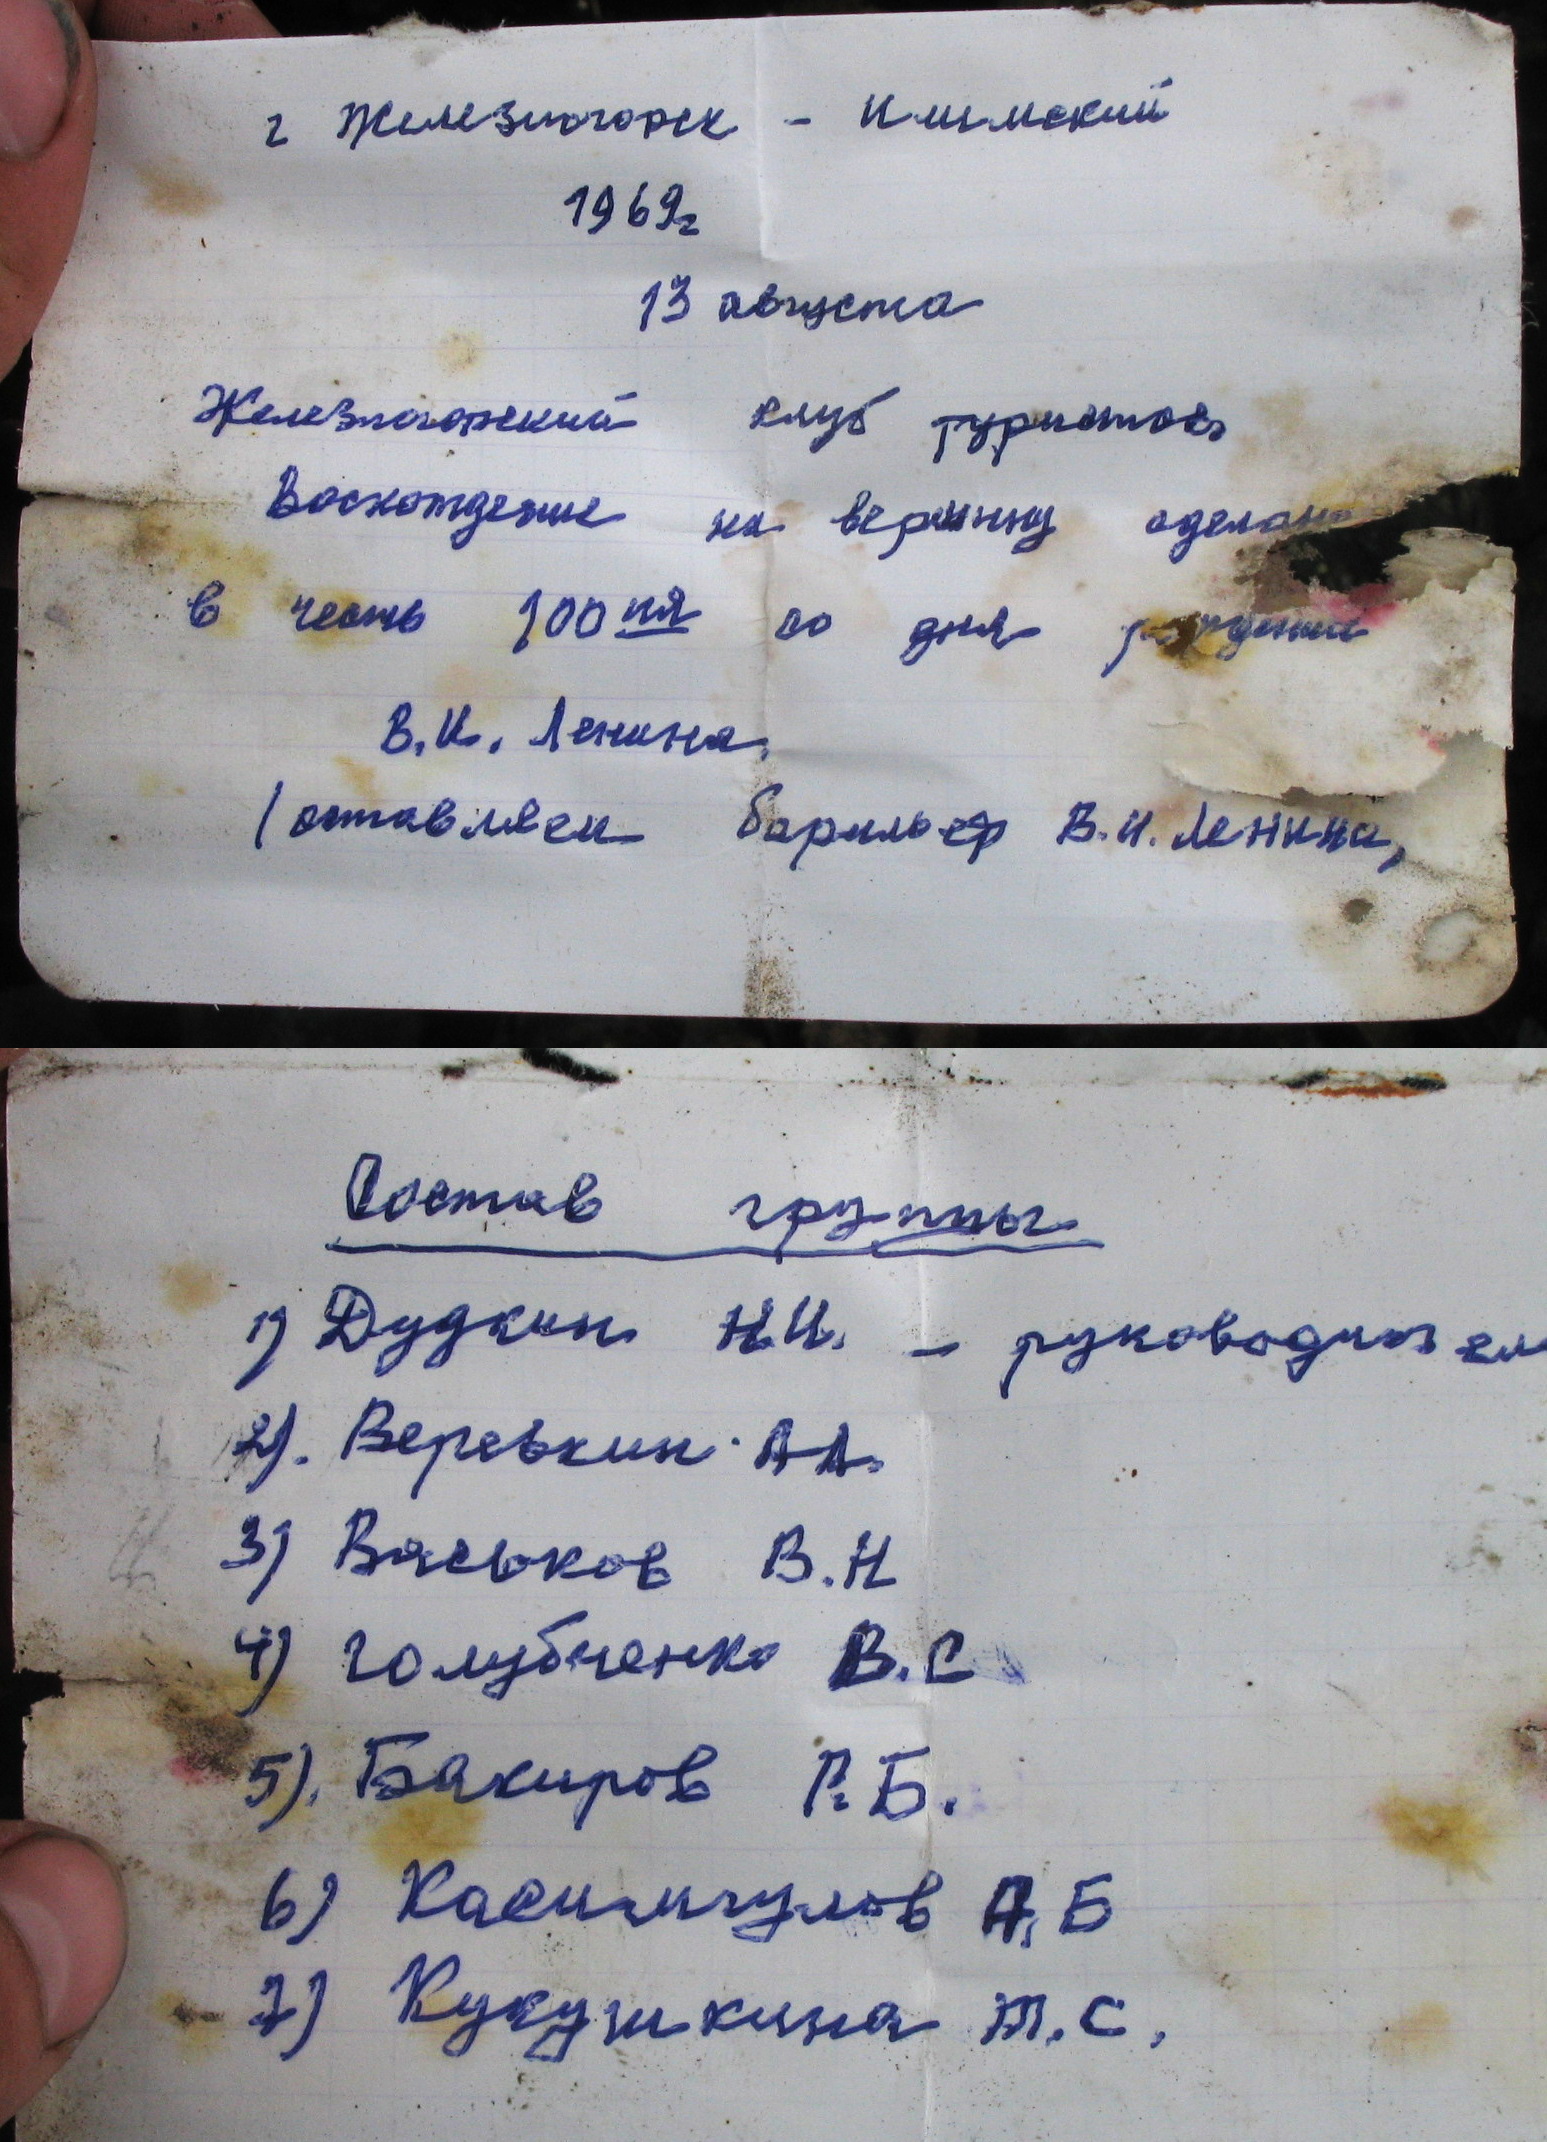 г Железногорск - Илимский
1969г
13 августа
Железногорский клуб туристов
Восхождение на вершину сделано
в честь 100 ия со дня рождения
В.И. Ленина.
(оставляем В.И. Ленина,
Состав группы
1) Дудкин Н.И. - руководител
2). Веревкин А А.
3) Васьков В.Н
4) Голубченко В.С
5). Бакиров Г.Б.
6) Касимгулов А.Б
7) Кукушкина Т.С.